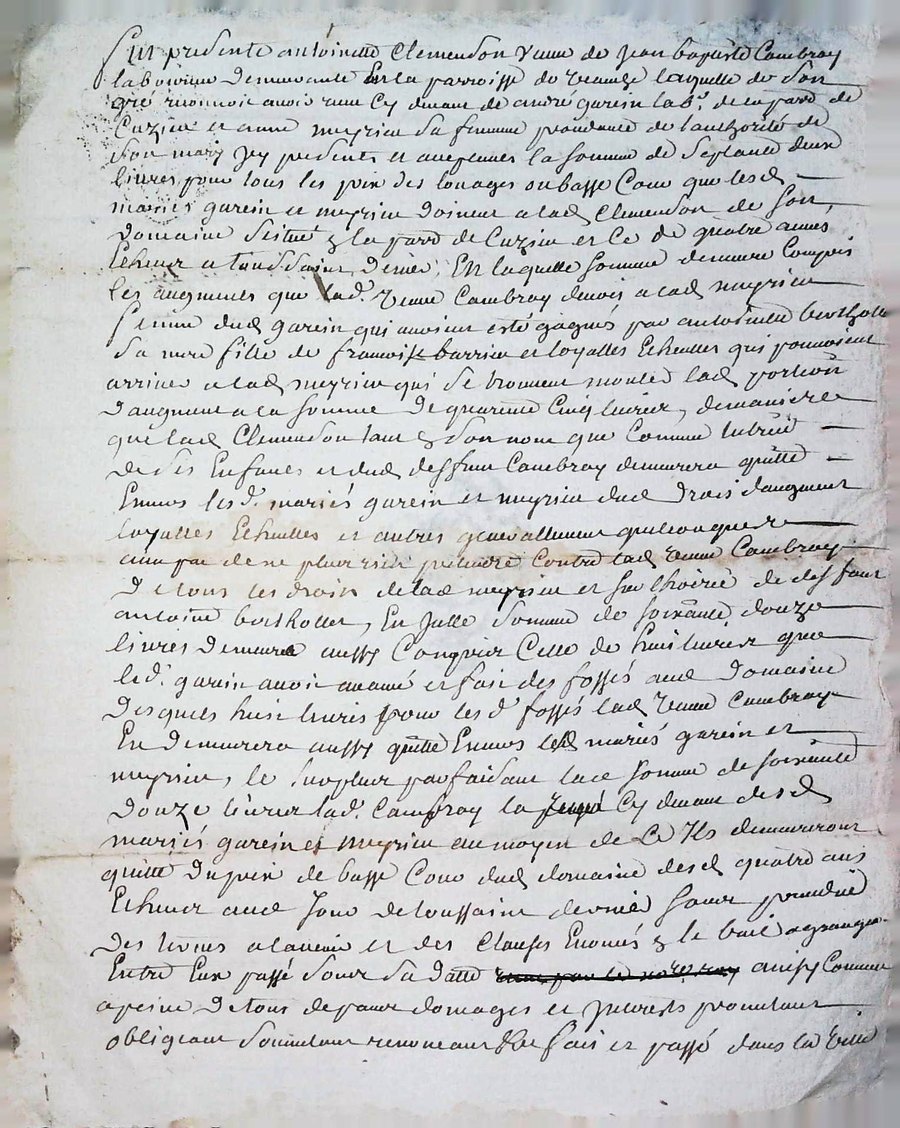 fut presente antoinette Clemenson veuve de Jean baptiste Cambray
laboureur demeurante En la parroisse de laquelle de son
gré reconnoit avoir receu Cy devant de andré garein lab.r de la parr de
Cuzieu et anne meyrieu sa femme procedante de l'authorité de
son mary Icy presents et acceptants la somme de septante deux
livres pour tous les prix des louages ou basse Cour que lesd
mariés garein et meyrieu doivent a lad Clemenson de son
domaine scitué & la parr de Cuzieu et Ce de quatre annés
Echeues a toussaint dernier, En laquelle somme demeure Compris
les augments que lad. veuve Cambray devoit a lad meyrieu
femme dud garein qui avoient esté gagnés par antoinette bertholle
sa mere fille de francoise barrieu et loyalles Echeuttes qui pouvoient
arriver a lad meyrieu qui se trouvent monter lad portion
d'augment a la somme de quarente Cinq livres, de maniere
que lad Clemenson tant & son nom que Comme tutrice
de ses Enfants et dud deffunt Cambray demeurera quitte
Envers lesd. mariés garein et meyrieu dud droit d'augment
loyalles Echeuttes et autres generallement quelconques
avec pac de ne plus rien pretendre contre lad veuve Cambray
de tous les droits de lad meyrieu et sur l'hoirie de deffunt
antoine berthollet, En jatte somme de soixante douze
livres demeure aussy Compris Celle de huit livres que
led. garein avoit avancé et fait des fossés aud domaine
desquels huit livres pour les d. fossés lad veuve Cambray
En demeurera aussy quitte Envers lesd mariés garein et
meyrieu, le surplus parfaisant lad somme de soixante
douze livres lad. Cambray la Cy devant desd
mariés garein et meyrieu au moyen de Ce Ils demeureront
quitte du prix de basse Cour dud domaine desd quatre ans
Echeues aud Jour de toussaint dernier sans prejudice
des termes a l'avenir et des Clauses Enoncés & le bail a grangeage
Entre Eux passé sous sa datte ainsy Comme
a peine de tous depans domages et Interests promettant
obligeant soumettant renonceant &c fait et passé dans la ville